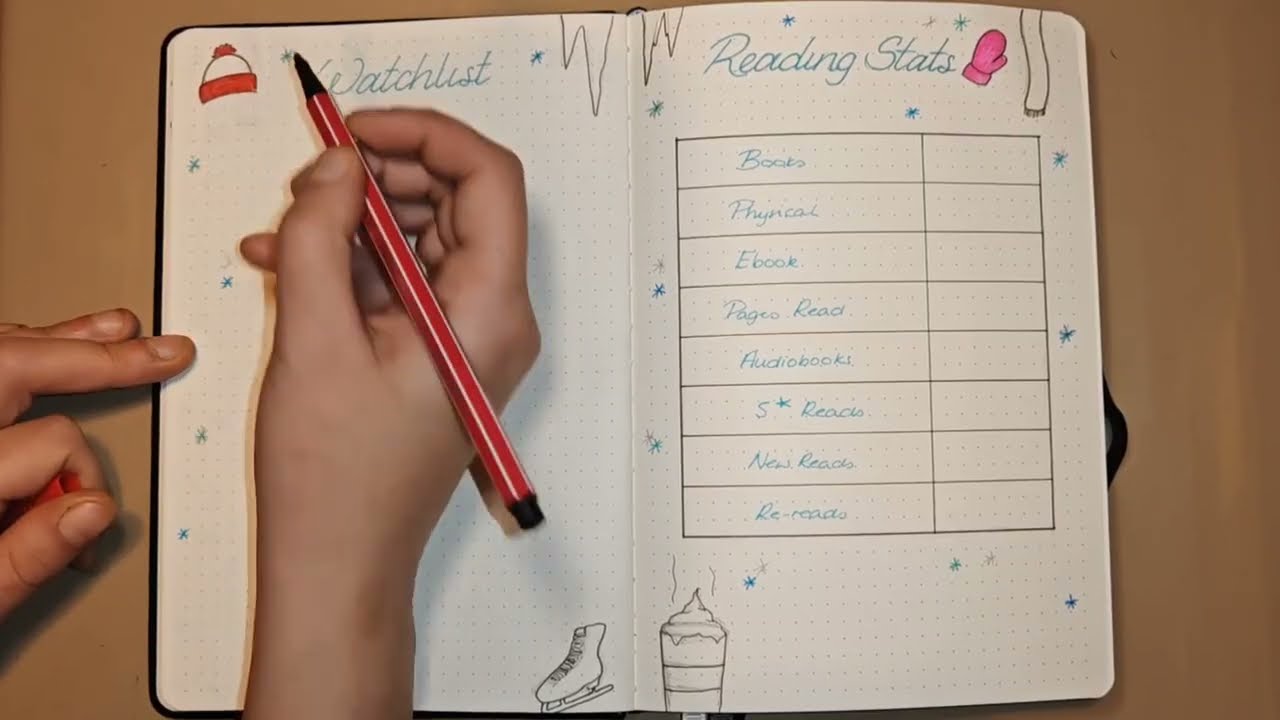 Watchlist
Reading Stats
Books
Physical
Ebook
Pages Read
Audiobooks
5* Reads
New Reads
Re-reads